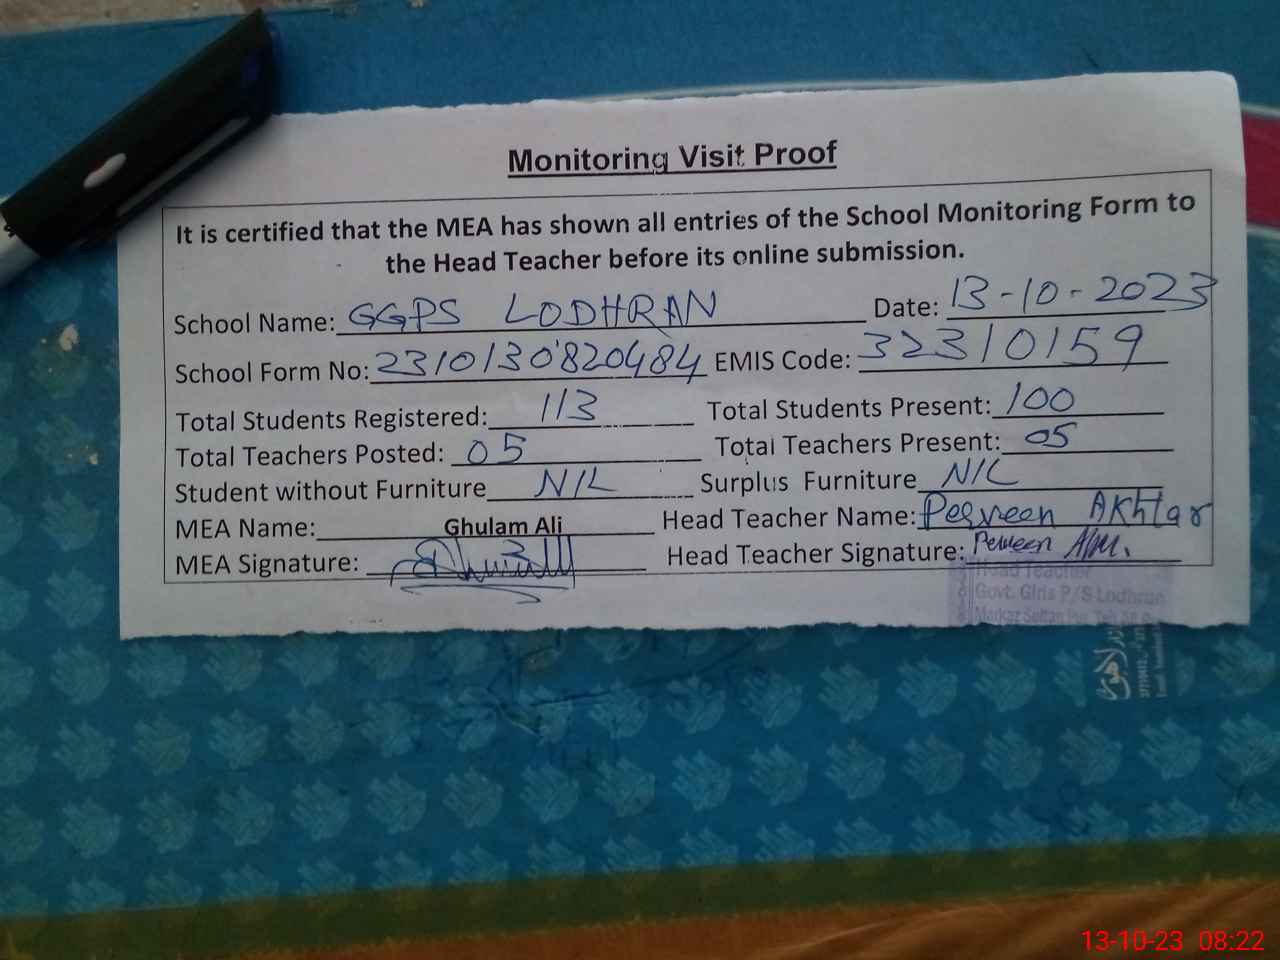 Monitoring Visit Proof
It is certified that the MEA has shown all entries of the School Monitoring Form to
the Head Teacher before its online submission.
School Name: GGPS LODHRAN Date: 13-10-2023
School Form No: 2310130820484 EMIS Code: 32310159
Total Students Registered: 113 Total Students Present: 100
Total Teachers Posted: 05 Total Teachers Present: 05
Student without Furniture NIL Surplus Furniture NIL
MEA Name: Ghulam Ali Head Teacher Name: Perveen Akhtar
MEA Signature: Head Teacher Signature: Perveen
Head Teacher
Govt. Girls P/S Lodhran
Markaz
13-10-23 08:22